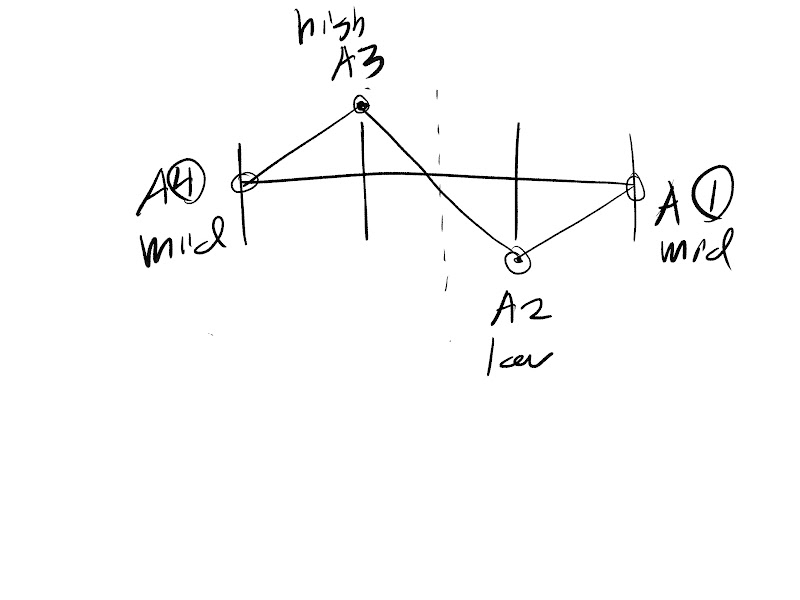 high
A3
A④
mid
A①
mid
A2
low